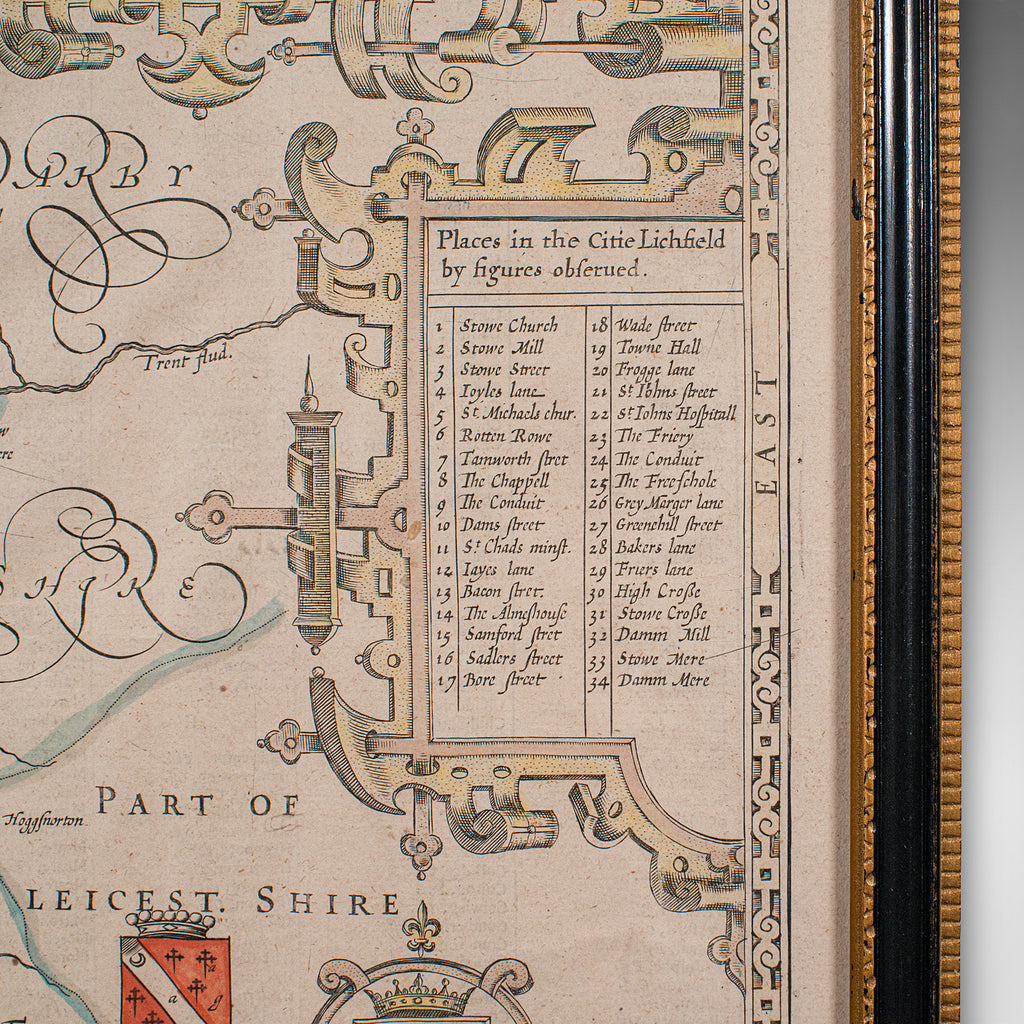 DARBY
SHIRE
Trent flud.
Places in the Citie Lichfield
by figures obſerued.
1 Stowe Church
2 Stowe Mill
3 Stowe Street
4 Ioyles lane
5 St. Michaels chur.
6 Rotten Rowe
7 Tamworth ſtret
8 The Chappell
9 The Conduit
10 Dams ſtreet
11 St. Chads minſt.
12 Iayes lane
13 Bacon ſtret.
14 The Almeſhouſe
15 Samford ſtret
16 Sadlers ſtreet
17 Bore ſtreet
18 Wade ſtreet
19 Towne Hall
20 Frogge lane
21 St Iohns ſtreet
22 St Iohns Hoſpitall
23 The Friery
24 The Conduit
25 The Freeſchole
26 Grey Marger lane
27 Greenehill ſtreet
28 Bakers lane
29 Friers lane
30 High Croſſe
31 Stowe Croſſe
32 Damm Mill
33 Stowe Mere
34 Damm Mere
EAST
PART OF
Hoggſnorton
LEICEST. SHIRE
a
a
g